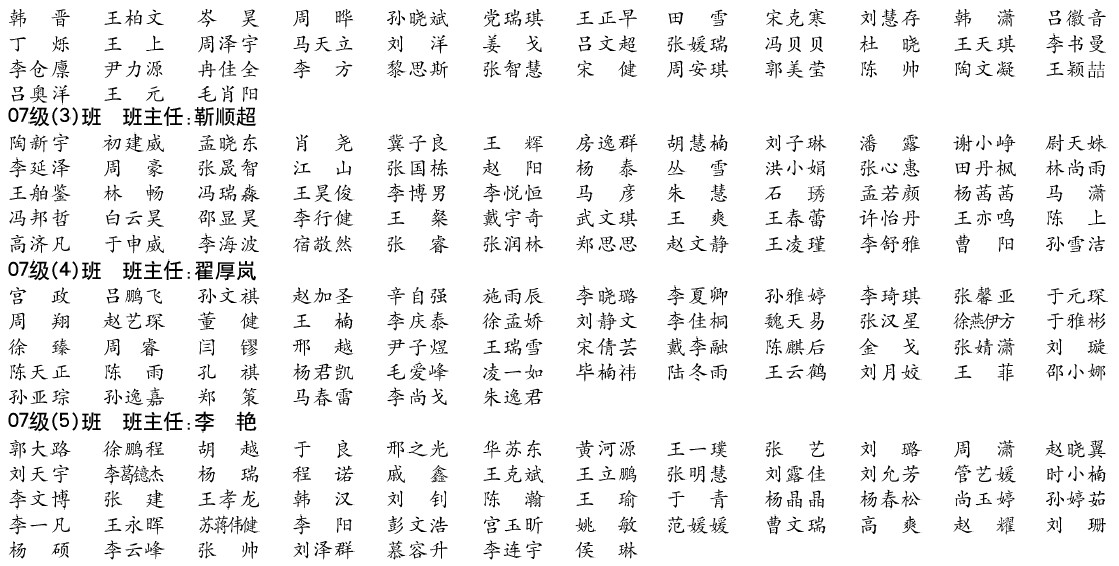 韩　晋 王柏文 岑　昊 周　晔 孙晓斌 党瑞琪 王正早 田　雪 宋克寒 刘慧存 韩　潇 吕徽音
丁　烁 王　上 周泽宇 马天立 刘　洋 姜　戈 吕文超 张媛瑞 冯贝贝 杜　晓 王天琪 李书曼
李仓廪 尹力源 冉佳全 李　方 黎思斯 张智慧 宋　健 周安琪 郭美莹 陈　帅 陶文凝 王颖喆
吕奥洋 王　元 毛肖阳
07级(3)班　班主任:靳顺超
陶新宇 初建威 孟晓东 肖　尧 冀子良 王　辉 房逸群 胡慧楠 刘子琳 潘　露 谢小峥 尉天姝
李延泽 周　豪 张晟智 江　山 张国栋 赵　阳 杨　泰 丛　雪 洪小娟 张心惠 田丹枫 林尚雨
王舶鉴 林　畅 冯瑞淼 王昊俊 李博男 李悦恒 马　彦 朱　慧 石　琇 孟若颜 杨茜茜 马　潇
冯邦哲 白云昊 邵显昊 李行健 王　粲 戴宇奇 武文琪 王　爽 王春蕾 许怡丹 王亦鸣 陈　上
高济凡 于申威 李海波 宿敬然 张　睿 张润林 郑思思 赵文静 王凌瑾 李舒雅 曹　阳 孙雪洁
07级(4)班　班主任:翟厚岚
宫　政 吕鹏飞 孙文祺 赵加圣 辛自强 施雨辰 李晓璐 李夏卿 孙雅婷 李琦琪 张馨亚 于元琛
周　翔 赵艺琛 董　健 王　楠 李庆泰 徐孟娇 刘静文 李佳桐 魏天易 张汉星 徐燕伊方 于雅彬
徐　臻 周　睿 闫　镠 邢　越 尹子煜 王瑞雪 宋倩芸 戴李融 陈麒后 金　戈 张婧潇 刘　璇
陈天正 陈　雨 孔　祺 杨君凯 毛爱峰 凌一如 毕楠祎 陆冬雨 王云鹤 刘月姣 王　菲 邵小娜
孙亚琮 孙逸嘉 郑　策 马春雷 李尚戈 朱逸君
07级(5)班　班主任:李　艳
郭大路 徐鹏程 胡　越 于　良 邢之光 华苏东 黄河源 王一璞 张　艺 刘　璐 周　潇 赵晓翼
刘天宇 李葛镱杰 杨　瑞 程　诺 戚　鑫 王克斌 王立鹏 张明慧 刘露佳 刘允芳 管艺媛 时小楠
李文博 张　建 王孝龙 韩　汉 刘　钊 陈　瀚 王　瑜 于　青 杨晶晶 杨春松 尚玉婷 孙婷茹
李一凡 王永晖 苏蒋伟健 李　阳 彭文浩 宫玉昕 姚　敏 范媛媛 曹文瑞 高　爽 赵　耀 刘　珊
杨　硕 李云峰 张　帅 刘泽群 慕容升 李连宇 侯　琳